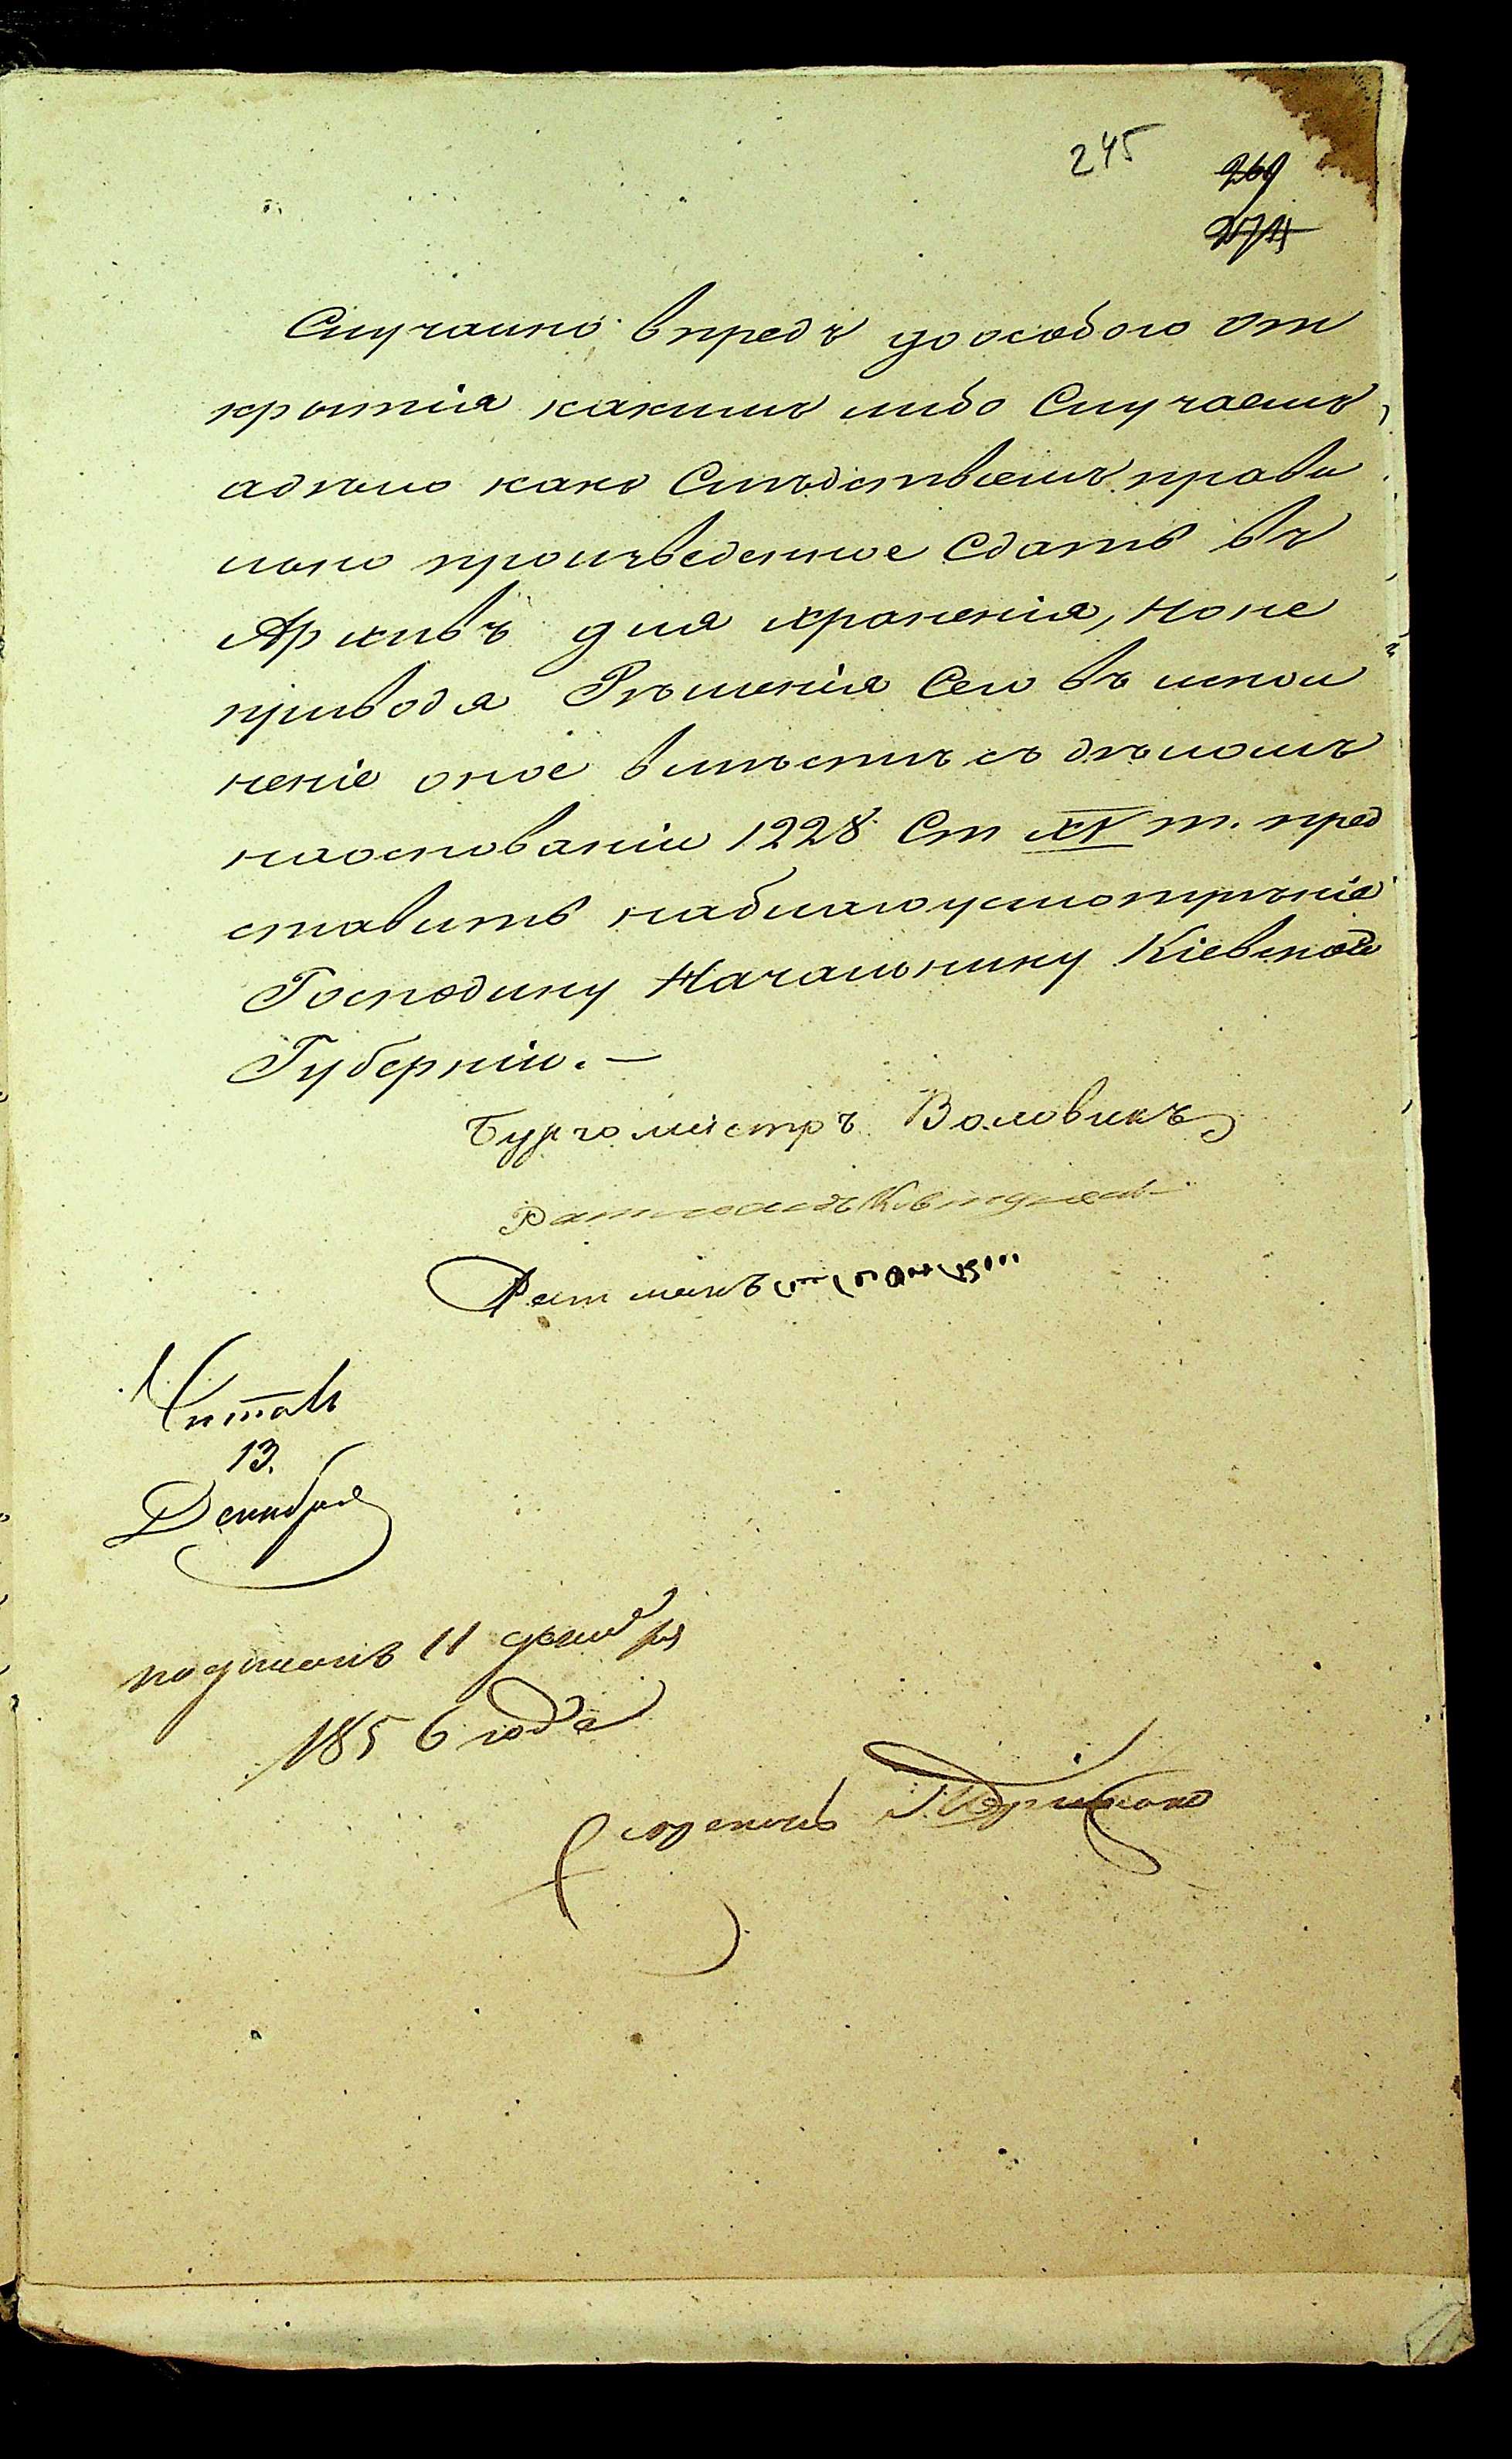 245
269
274
Случайно впредъ до особого от
крытія какимъ либо Случаемъ,
адѣло како Слѣдствіемъ прави
льно произведенное Сдать въ
Архивъ для храненія, но не
приводя Рѣшенія Сего въ испол
неніе оное вмѣстѣ съ дѣломъ
на основаніи 1228 Ст XV т. пред
ставить на благоусмотрѣніе
Господину Начальнику Кіевской
Губерніи. —
Бургомистръ Воловикъ
Ратманъ
Ратманъ
Читалъ
13.
Декабря
подписанъ 11 декабря
1856 года